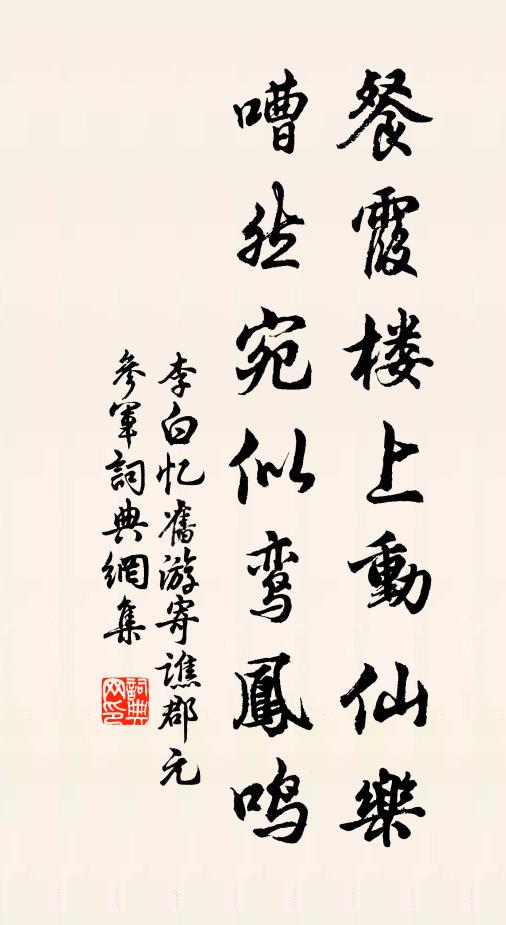 餐霞楼上动仙樂
嘈然宛似鸾鳳鸣
李白忆舊游寄譙郡元
参军詞典網集
詞典网印